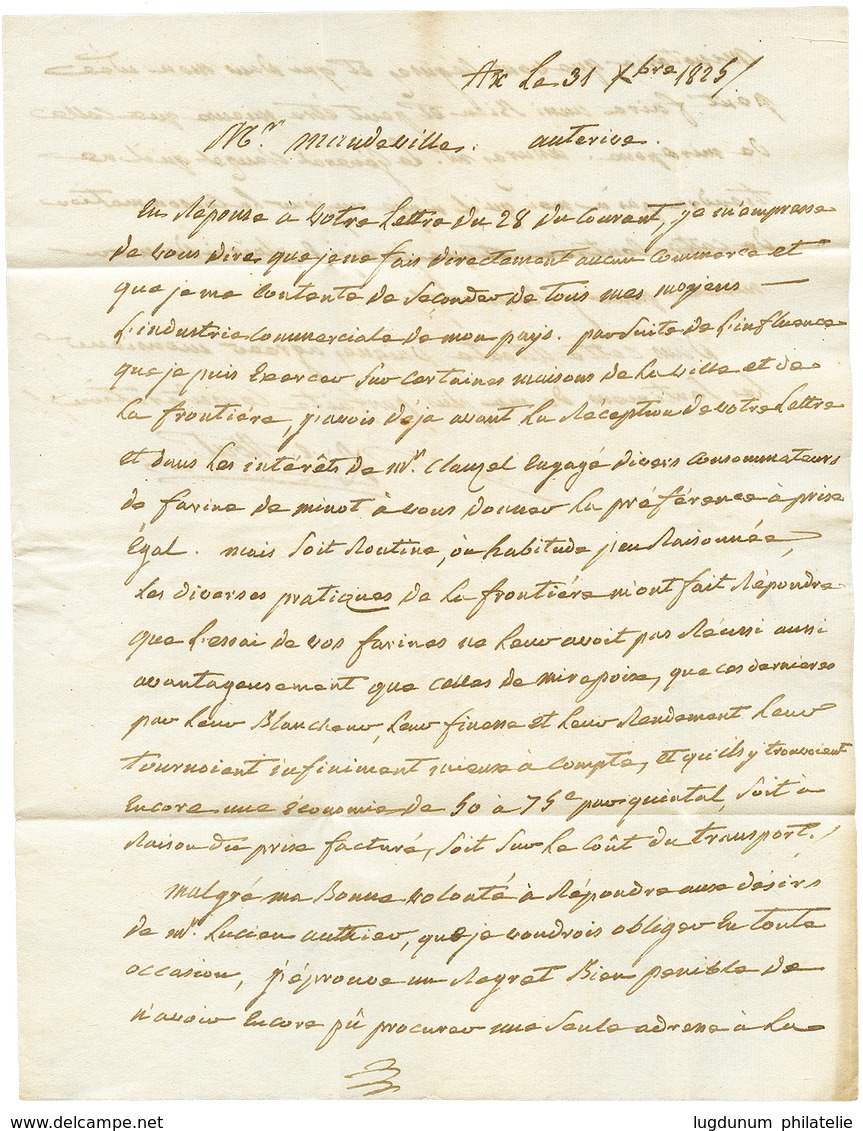 Ax Le 31 Xbre 1825/
Mr. Mandeville. auterive.
En Réponse à votre Lettre du 28 du Courant, je m'empresse
de vous dire que je ne fais directement aucun Commerce et
que je me Contente de Seconder de tous mes moyens —
L'industrie Commerciale de mon pays. par Suite de L'influence
que je puis Exercer Sur Certaines maisons de La ville et de
La frontiére, j'avois déja avant La Réception de votre Lettre
et dans Les intérêts de Mr. Clauzel Engagé divers Consommateurs
de farine de minot à vous donner La préférence à prix
Égal. mais Soit Routine, où habitude peu Raisonnée,
Les diverses pratiques de La frontiére m'ont fait Répondre
que L'essai de vos farines ne Leur avoit pas Réussi aussi
avantageusement que celles de mirepoix, que ces derniéres
par Leur Blancheur, Leur finesse et Leur Rendement Leur
Tournoient infiniment mieux à Compte, et qu'ils y trouvoient
Encore une économie de 50 à 75c par quintal, Soit à
Raison du prix facturé, Soit Sur Le Coût du transport./
malgré ma Bonne volonté à Répondre aux désirs
de Mr. Lucien authier, que je voudrois obliger En toute
occasion, j'éprouve un Regret Bien penible de
n'avoir Encore pû procurer une Seule adresse à La
www.delcampe.net
lugdunum philatelie